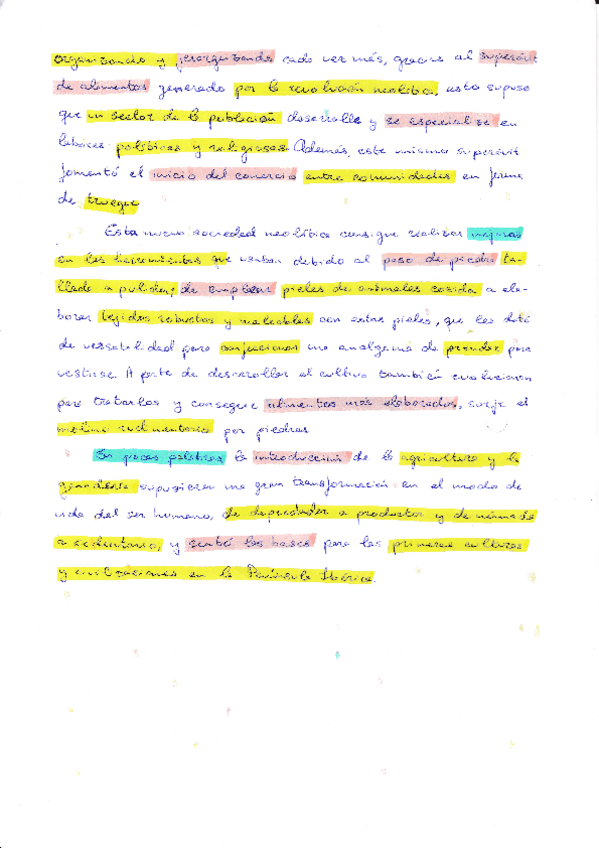 organizando y jerarquizando cada vez más, gracias al superávit
de alimentos generado por la revolución neolítica, esto supuso
que un sector de la población desarrolle y se especialize en
labores políticas y religiosas. Además, este mismo superávit
fomentó el inicio del comercio entre comunidades en forma
de trueque
Esta nueva sociedad neolítica consigue realizar mejoras
en las herramientas que usaban debido al paso de piedra ta-
llada a pulida; de emplear pieles de animales cosida a ela-
borar tejidos robustos y maleables con estas pieles, que les dotó
de versatilidad para confeccionar una amalgama de prendas para
vestirse. A parte de desarrollar el cultivo también evolucionan
para tratarlos y conseguir alimentos más elaborados, surje el
molino rudimentario por piedras
En pocas palabras la introducción de la agricultura y la
ganadería supusieron una gran transformación en el modo de
vida del ser humano, de depredador a productor y de nómada
a sedentario, y sentó las bases para las primeras culturas
y civilizaciones en la Península Ibérica.